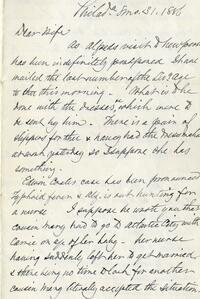 Philad^a 8mo. 31. 1886
Dear Wife,
As a players visit to Newport
has been indefinitely postponed I have
mailed the last number of the
to thee this morning. What is to be
done with the dresses, which were to
be sent by him. There is a pair of
slippers for thee & Nancy had the dressmaker
at work yesterday so I suppose she has
something.
Edwin Coates case has been pronounced
Typhoid fever & is out hunting for
a nurse I suppose he wrote you that
cousin Mary had to go to Atlantic City with
Carrie on a/c of her baby - her nurse
having suddenly left her to get married
& there being no time to look for another
cousin Mary literally accepted the situation.